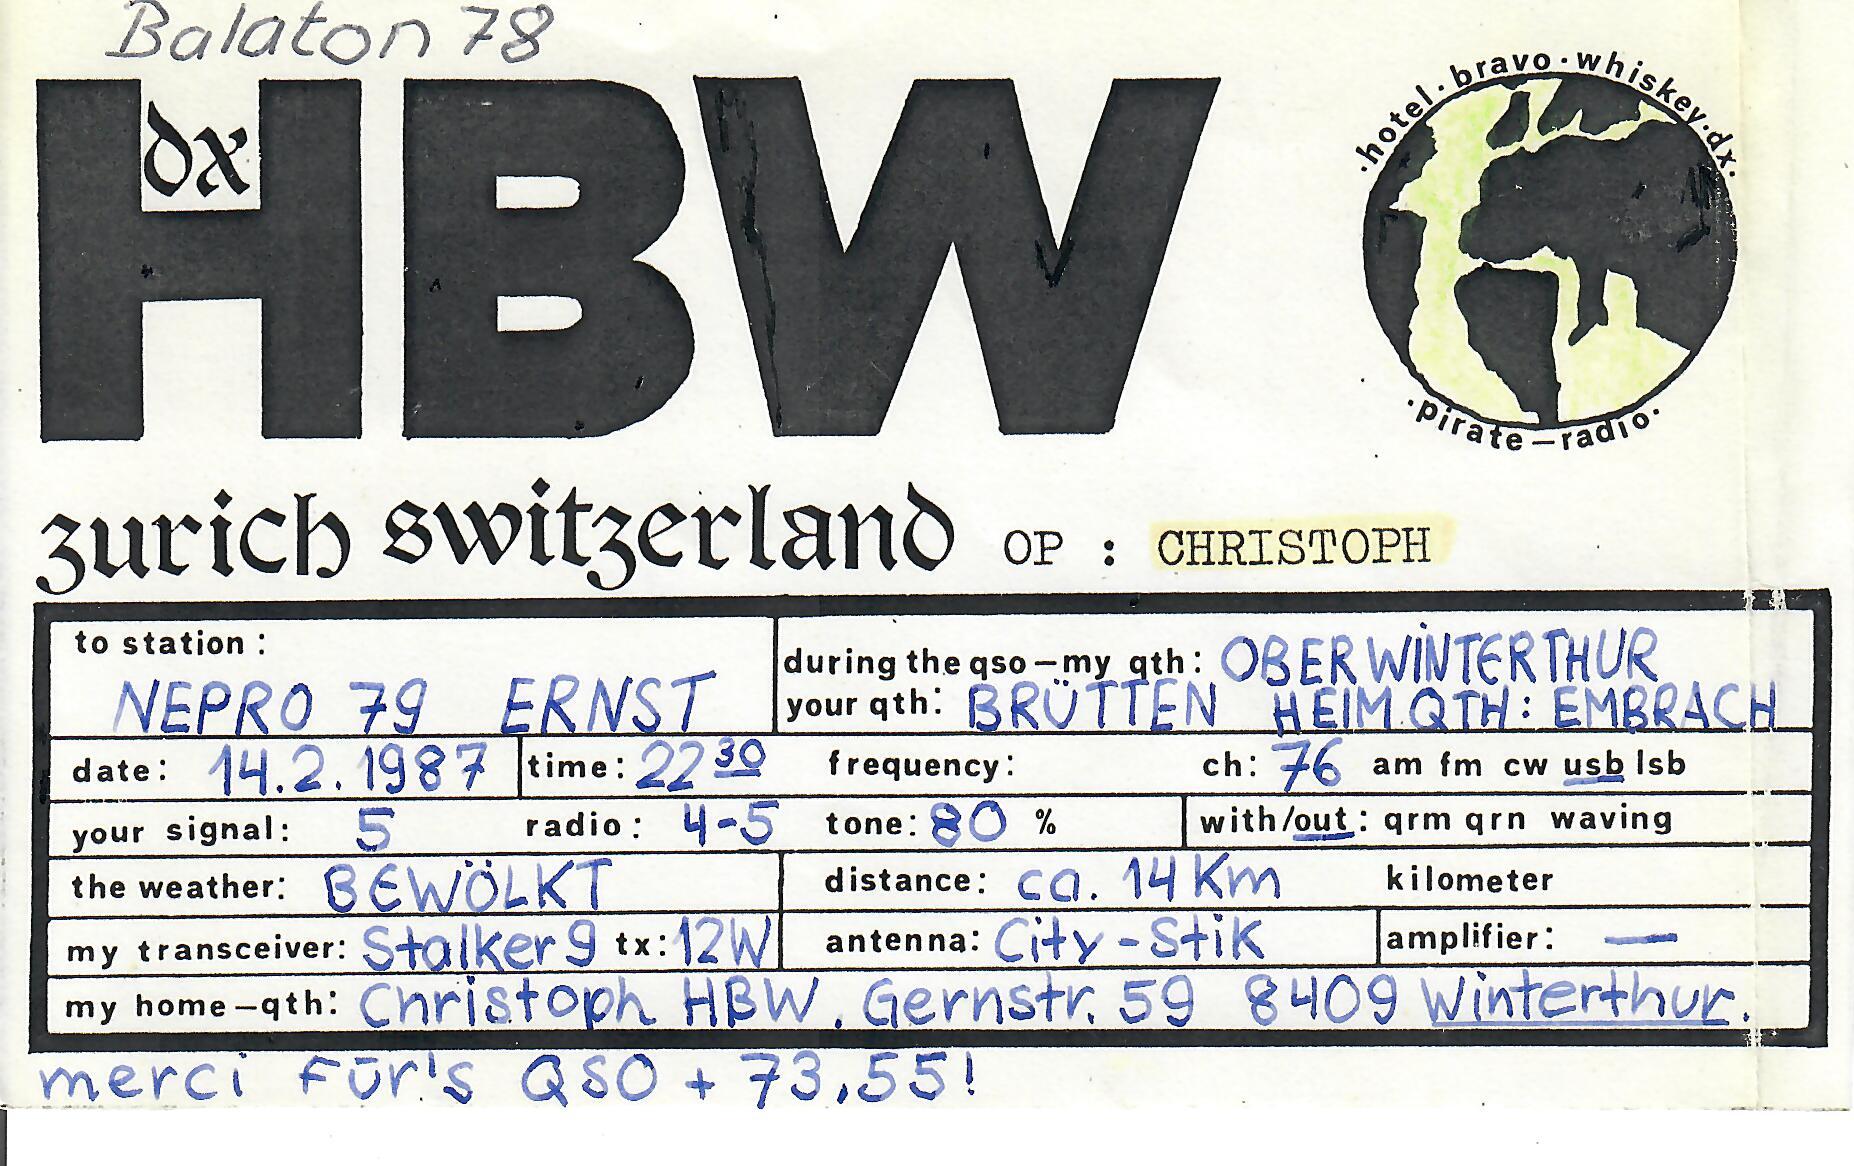 Balaton 78
dx
HBW
·hotel·bravo·whiskey·dx·
·pirate–radio·
zurich switzerland OP : CHRISTOPH
to station:
NEPRO 79 ERNST
during the qso–my qth: OBERWINTERTHUR
your qth: BRÜTTEN HEIM.QTH: EMBRACH
date: 14.2.1987 time: 22 30 frequency: ch: 76 am fm cw usb lsb
your signal: 5 radio: 4-5 tone: 80 % with/out: qrm qrn waving
the weather: BEWÖLKT distance: ca. 14 Km kilometer
my transceiver: Stalker 9 tx: 12W antenna: City-Stik amplifier: —
my home–qth: Christoph HBW, Gernstr. 59 8409 Winterthur.
merci für's QSO + 73,55!